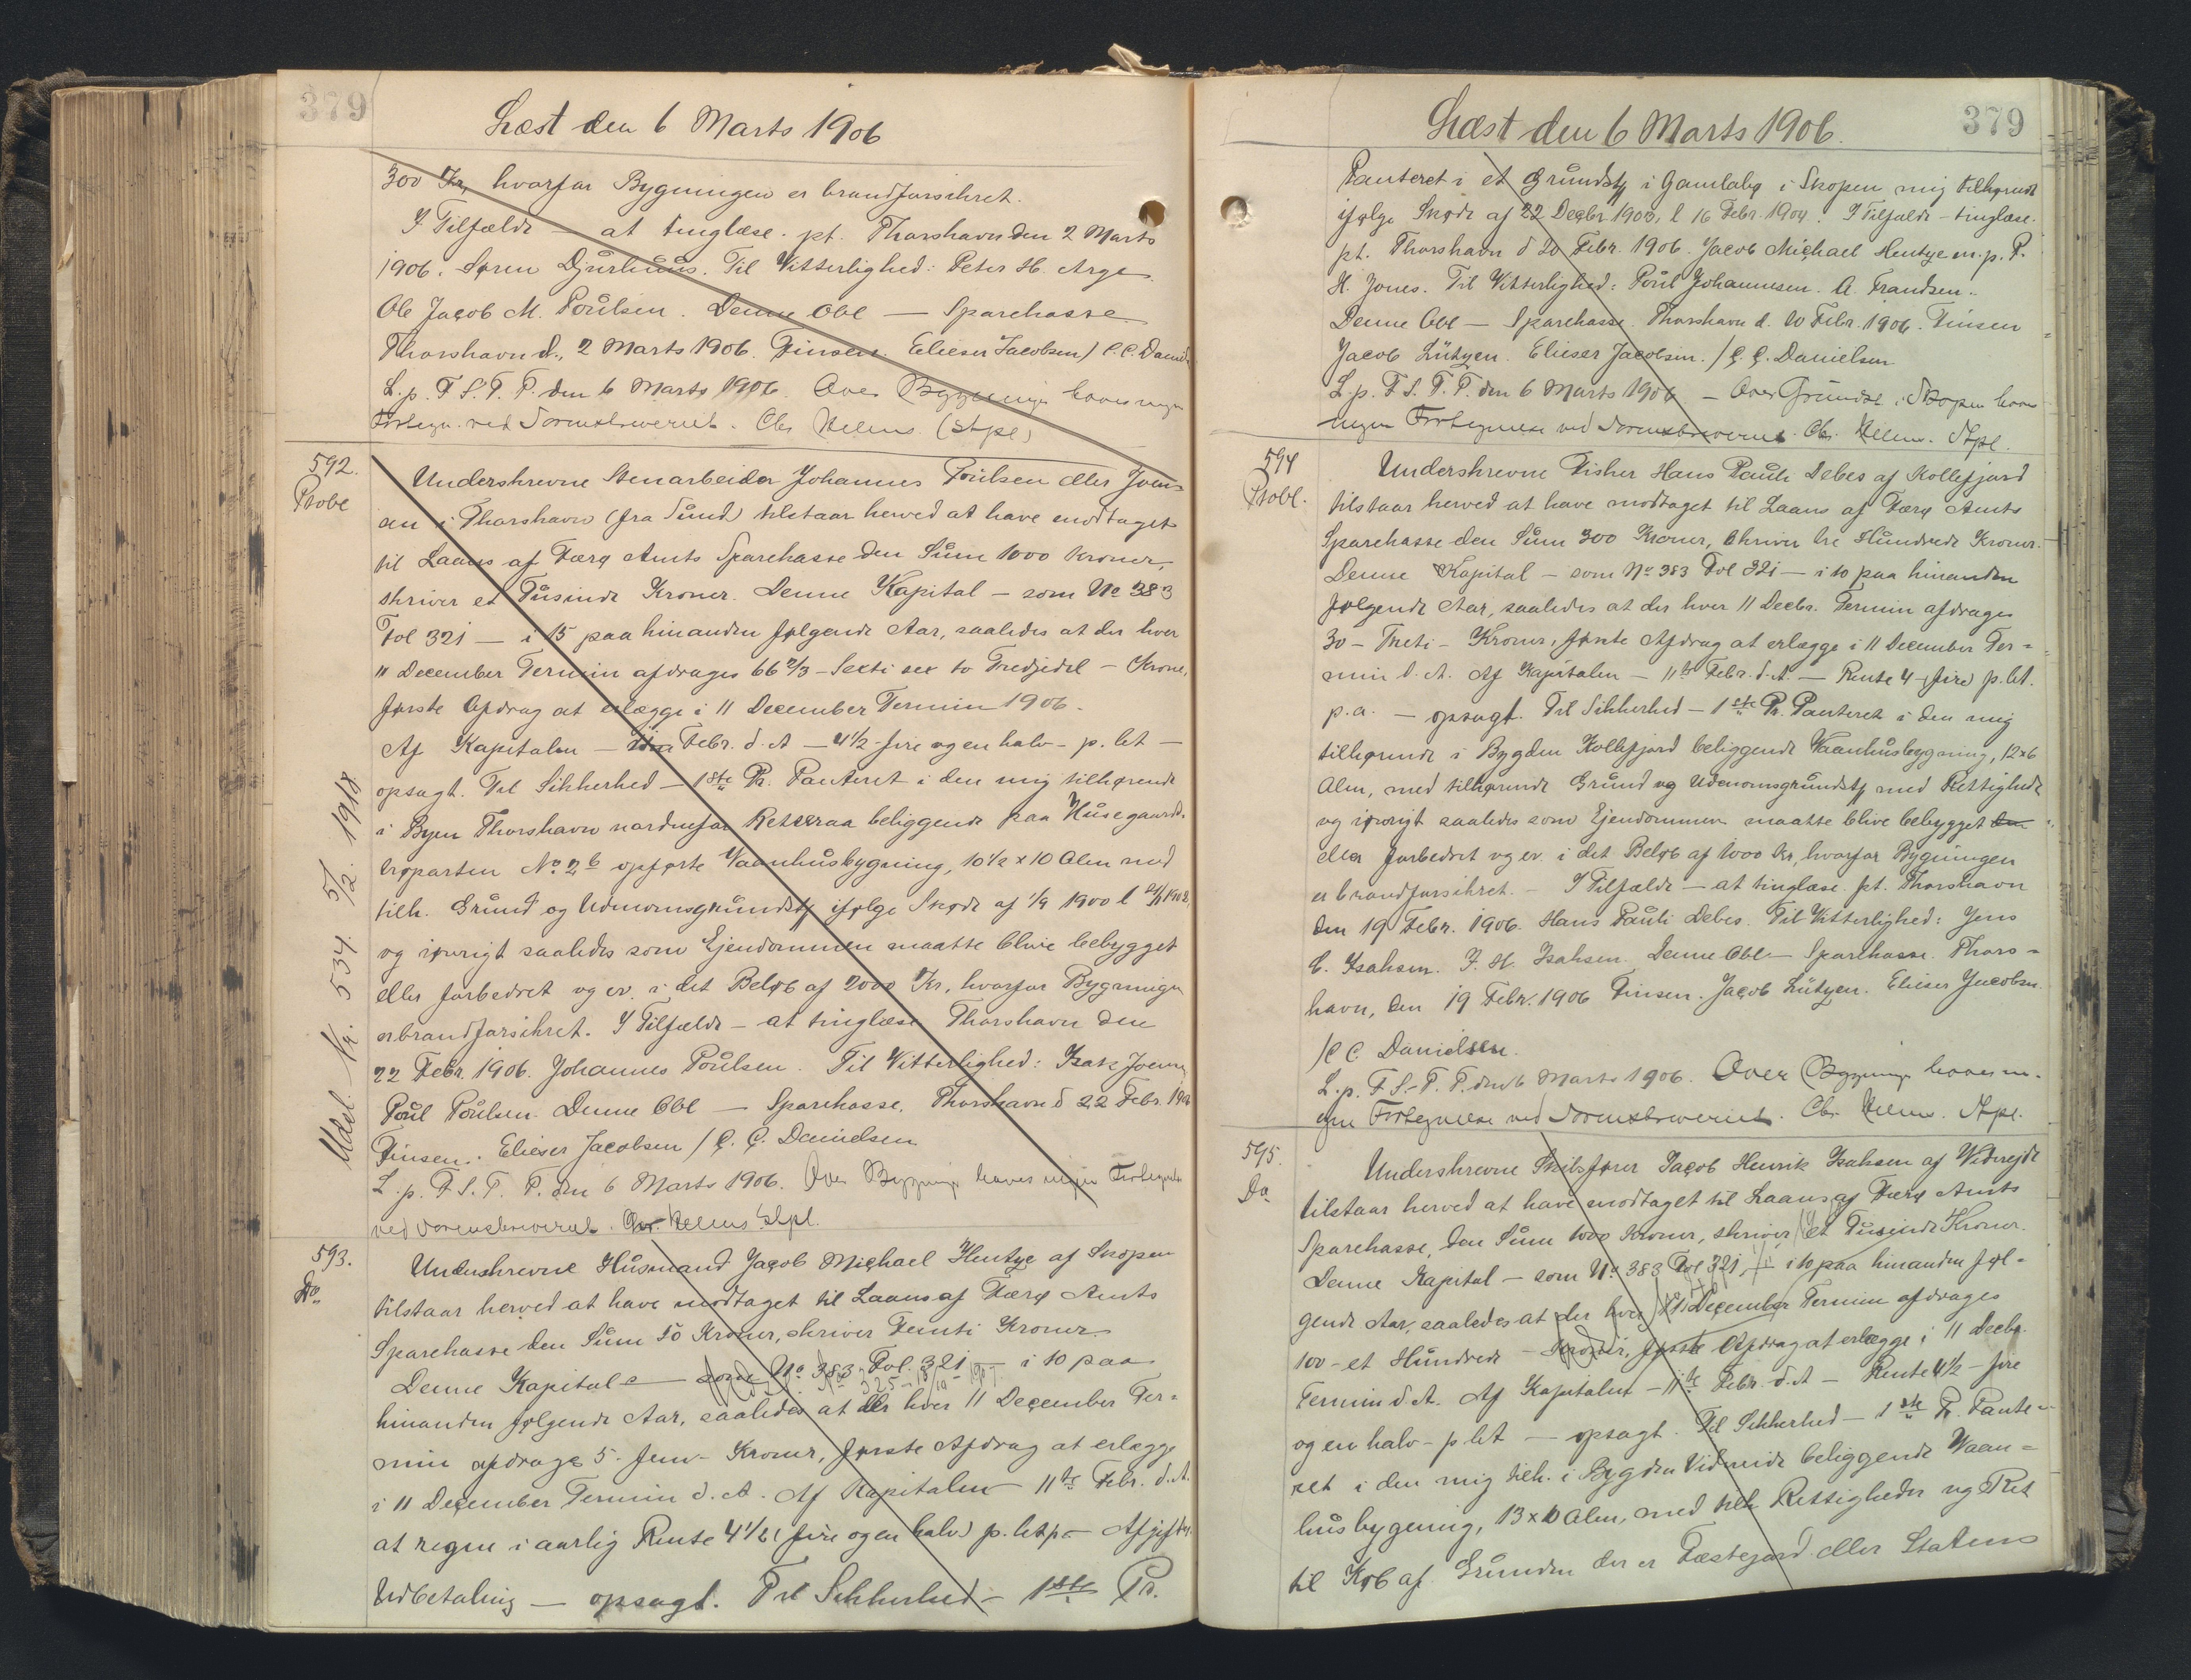 379
Læst den 6 Marts 1906
300 Kr, hvorfor Bygningen er brandforsikret.
I Tilfælde — at tinglæse. pt. Thorshavn den 2 Marts
1906. Søren Djurhuus. Til Vitterlighed: Peter H. Arge
Ole Jacob M. Poulsen. Denne Obl — Sparekasse
Thorshavn d., 2 Marts 1906. Finsen. Elieser Jacobsen / C.C. Daniels
L. p. F. S. T. P. den 6 Marts 1906. Over Bygninge haves ingen
Fortegn. ved Sorenskriveriet. Chr Helms. (Stpl)
592.
Pobl
Underskrevne Stenarbeider Johannes Poulsen eller Joen-
en i Thorshavn (fra Sund) tilstaar herved at have modtaget
til Laans af Færø Amts Sparekasse den Sum 1000 Kroner,
skriver et Tusinde Kroner. Denne Kapital — som No 383
Fol 321 — i 15 paa hinanden følgende Aar, saaledes at der hver
11 December Termin afdrages 66 2/3 - Sexti sex to Tredjedel - Krone,
første Afdrag at erlægge i 11 December Termin 1906.
Af Kapitalen — Febr. d. A — 4 1/2 - fire og en halv - p. Ct —
opsagt. Til Sikkerhed — 1ste Pr. Panteret i den mig tilhørende
i Byen Thorshavn nordenfor Reteraa beliggende paa Husegaards-
troparten No 2b opførte Vaanhusbygning, 10 1/2 x 10 Alen med
tilh. Grund og Udenomsgrundst. ifølge Skøde af 1/9 1900 l
og iøvrigt saaledes som Ejendommen maatte blive bebygget
eller forbedret og ev. i det Beløb af 2000 Kr, hvorfor Bygningen
er brandforsikret. I Tilfælde — at tinglæse Thorshavn den
22 Febr. 1906. Johannes Poulsen. Til Vitterlighed: Isak Joen
Poul Poulsen. Denne Obl — Sparekasse. Thorshavn d 22 Febr. 1906
Finsen. Elieser Jacobsen / C. C. Danielsen
L. p. F. S. T. P. den 6 Marts 1906. Over Bygninge haves ingen Fortegnelse
ved Sorenskriveriet. Chr. Helms Stpl.
Udsl No. 534 5/2. 1918
593.
Do
Underskrevne Husmand Jacob Michael Hentze af Skopen
tilstaar herved at have modtaget til Laans af Færø Amts
Sparekasse den Sum 50 Kroner, skriver Femti Kroner.
Denne Kapital — som No 383 Fol. 321 — i 10 paa
hinanden følgende Aar, saaledes at der hver 11 December Ter-
min afdrages 5 - fem - Kroner, første Afdrag at erlægge
i 11 December Termin d. A. Af Kapitalen 11te Febr. d. A.
at regne i aarlig Rente 4 1/2 (fire og en halv) p. Ct p. a Afgift
Udbetaling — opsagt. Til Sikkerhed — 1ste Pr.
379
Læst den 6 Marts 1906.
Panteret i et Grundst i Gamlalag i Skopen mig tilhørende
ifølge Skøde af 22 Decbr 1903, l 16 Febr. 1904. I Tilfælde — tinglæse.
pt. Thorshavn d 20 Febr. 1906. Jacob Michael Hentze m. p. P.
H. Jones. Til Vitterlighed: Poul Johannesen. A. Frandsen.
Denne Obl — Sparekasse. Thorshavn d. 20 Febr. 1906. Finsen
Jacob Lützen. Elieser Jacobsen. / C. C. Danielsen
L. p. F. S. T. P. den 6 Marts 1906 — Over Grundst. i Skopen haves
ingen Fortegnelse ved Sorenskriveriet. Chr. Helms. Stpl.
594
Pobl.
Underskrevne Fisker Hans Pauli Debes af Kollefjord
tilstaar herved at have modtaget til Laans af Færø Amts
Sparekasse den Sum 300 Kroner, skriver tre Hundrede Kroner.
Denne Kapital — som No 383 Fol 321 — i 10 paa hinanden
følgende Aar, saaledes at der hver 11 Decbr. Termin afdrages
30 - Tretti - Kroner, første Afdrag at erlægge i 11 December Ter-
min d. A. Af Kapitalen — 11te Febr. d. A. — Rente 4 (fire) p. Ct.
p. a. — opsagt. Til Sikkerhed — 1ste Pr. Panteret i den mig
tilhørende i Bygden Kollefjord beliggende Vaanhusbygning, 12x6
Alen, med tilhørende Grund og Udenomsgrundst med Rettigheder
og iøvrigt saaledes som Ejendommen maatte blive bebygget den
eller forbedret og ev. i det Beløb af 1000 Kr, hvorfor Bygningen
er brandforsikret. — I Tilfælde — at tinglæse. pt. Thorshavn
den 19 Febr. 1906. Hans Pauli Debes. Til Vitterlighed: Jens
C. Isaksen. J. H. Isaksen. Denne Obl — Sparekasse. Thors-
havn, den 19 Febr. 1906 Finsen. Jacob Lützen. Elieser Jacobsen.
/ C C Danielsen.
L. p. F. S. T. P. den 6 Marts 1906. Over Bygninge haves in-
gen Fortegnelse ved Sorenskriveriet. Chr. Helms. Stpl.
595.
Do
Underskrevne Skibsfører Jacob Henrik Isaksen af Videreide
tilstaar herved at have modtaget til Laans af Færø Amts
Sparekasse, den Sum 1000 Kroner, skriver et Tusinde Kroner.
Denne Kapital — som No 383 Fol 321 — i 10 paa hinanden føl-
gende Aar, saaledes at der hver 11 December Termin afdrages
100 - et Hundrede - Kroner, første Afdrag at erlægge i 11 Decbr.
Termin d. A. Af Kapitalen — 11te Febr. d. A — Rente 4 1/2 - fire
og en halv - p Ct — opsagt. Til Sikkerhed — 1ste Pr. Pante-
ret i den mig tilh. i Bygden Videreide beliggende Vaan-
husbygning, 13x10 Alen, med tilh Rettigheder og Ret
til Køb af Grunden der er Fæstejord eller Statens